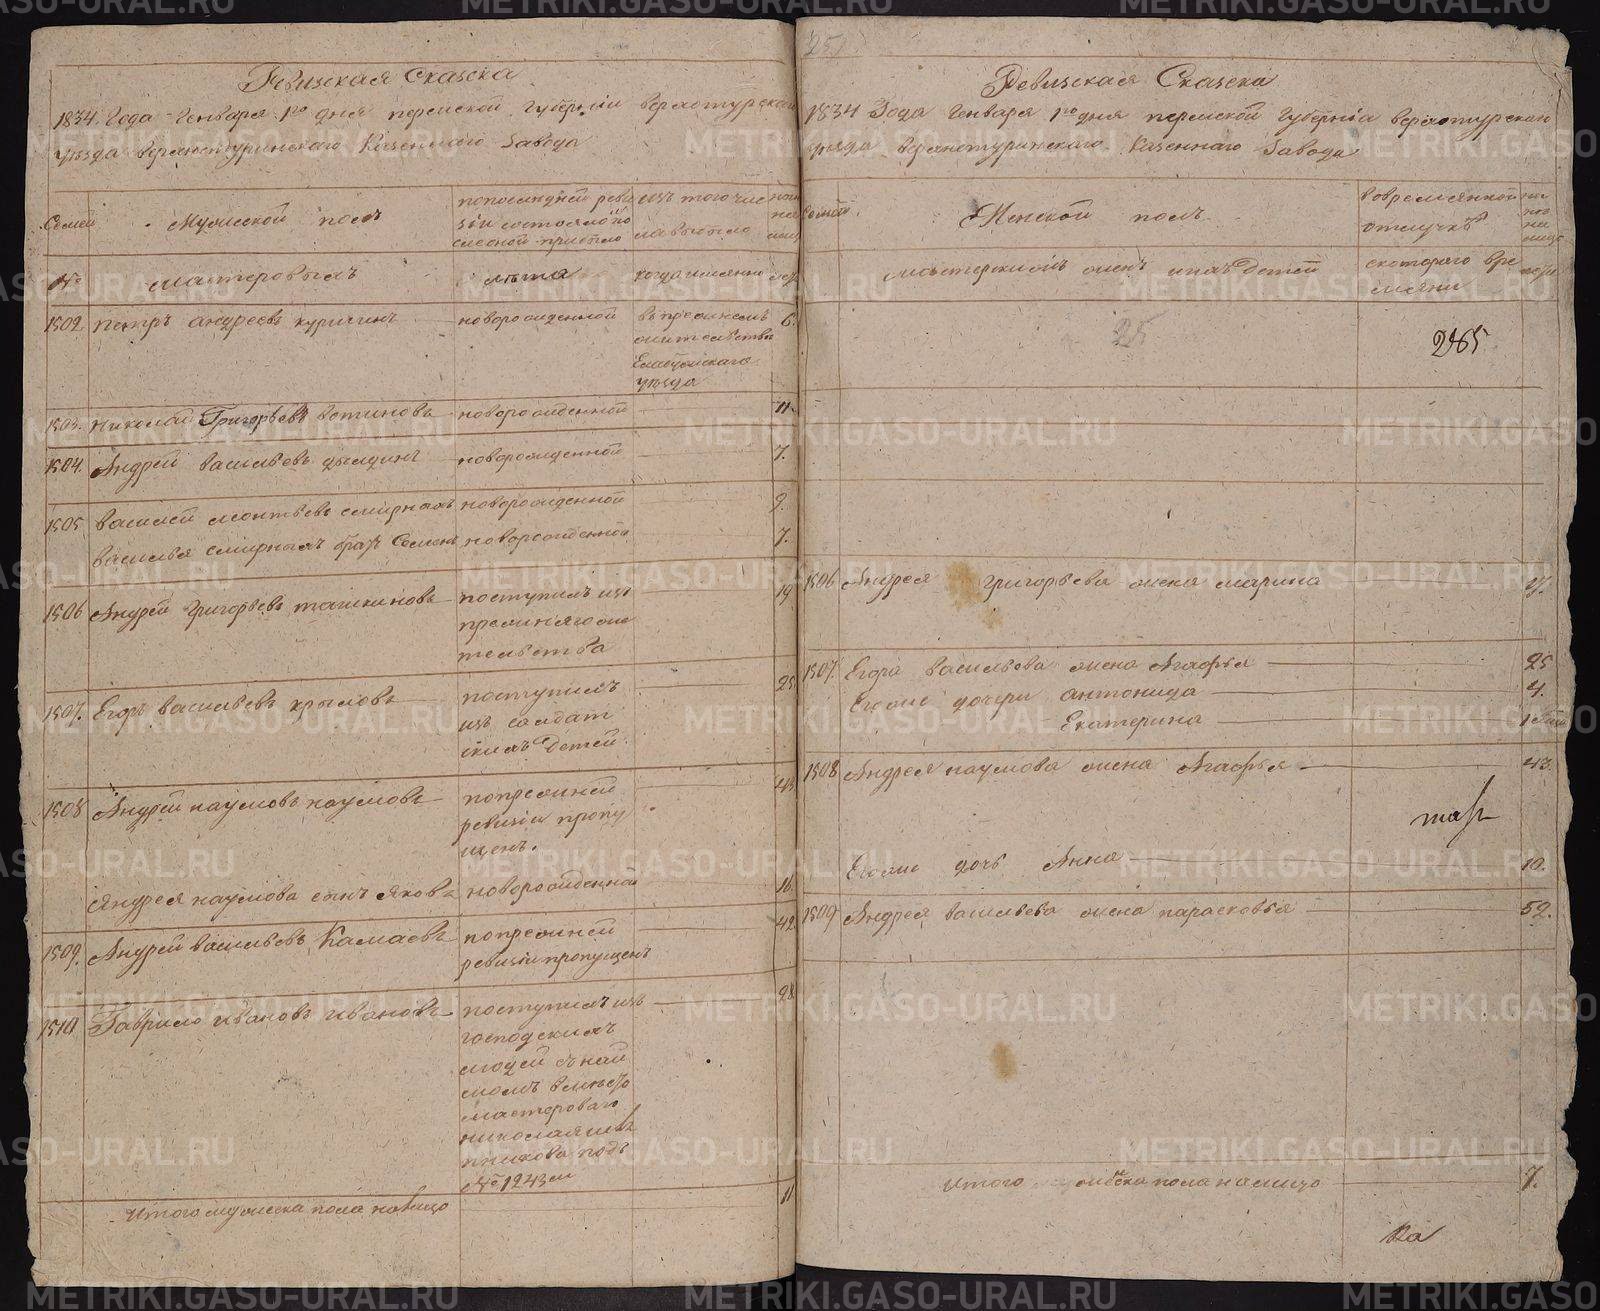 Ревизская Сказска
1834 Года Генваря 1го дня пермской Губерніи верхотурскаго
уѣзда верхнетуринскаго Казеннаго Завода
Семей
Мужеской полъ
попоследней реви
зіи состояло и по
слеоной прибыло
изъ того чис
ла выбыло
ныне
на
лицо
№
мастеровыхъ
лѣта
когда имянно
лѣта
1502. петръ андреевъ куричинъ новорожденной
въ прежнемъ
жительстве
Елабужскаго
уѣзда
6.
1503. николай Григорьевъ вотиновъ новорожденной 11.
1504. Андрей васильевъ дылдинъ новорожденной 7.
1505 василей леонтьевъ смирныхъ новорожденной 9.
васильа смирныхъ братъ Семенъ новорожденной 7.
1506 Андрей григорьевъ ташкиновъ поступилъ изъ 19
прежняго жи
тельства
1507. Егоръ васильевъ крыловъ поступилъ 25
изъ солдат
скихъ детей
1508 Андрей наумовъ наумовъ попрежней 45
ревизіи пропу
щенъ.
Андрея наумова сынъ яковъ новорожденной 16
1509. Андрей васильевъ Камаевъ попрежней 42
ревизіи пропущенъ
1510 Гаврило ивановъ ивановъ поступилъ изъ 28
господскихъ
людей съ най
момъ вместо
мастероваго
николая
пникова подъ
№ 1243м
итого мужеска пола налицо 11
25
Ревизская Сказска
1834 Года Генваря 1го дня пермской Губерніи верхотурскаго
уѣзда верхнетуринскаго Казеннаго Завода
Семей
Женской полъ
вовремянной
отлучкѣ
ны
не
на
лицо
мастерскихъ женъ ихъ детей
скотораго вре
мяни
лѣта
25
265
1506 Андрея григорьева жена марина 17.
1507. Егора васильева жена Агафья 25
Егоже дочери антонида 4.
Екатерина 1
1508 Андрея наумова жена Агафья 43.
Егоже дочь Анна 10.
1509 Андрея васильева жена парасковья 52.
итого женска пола налицо 7.